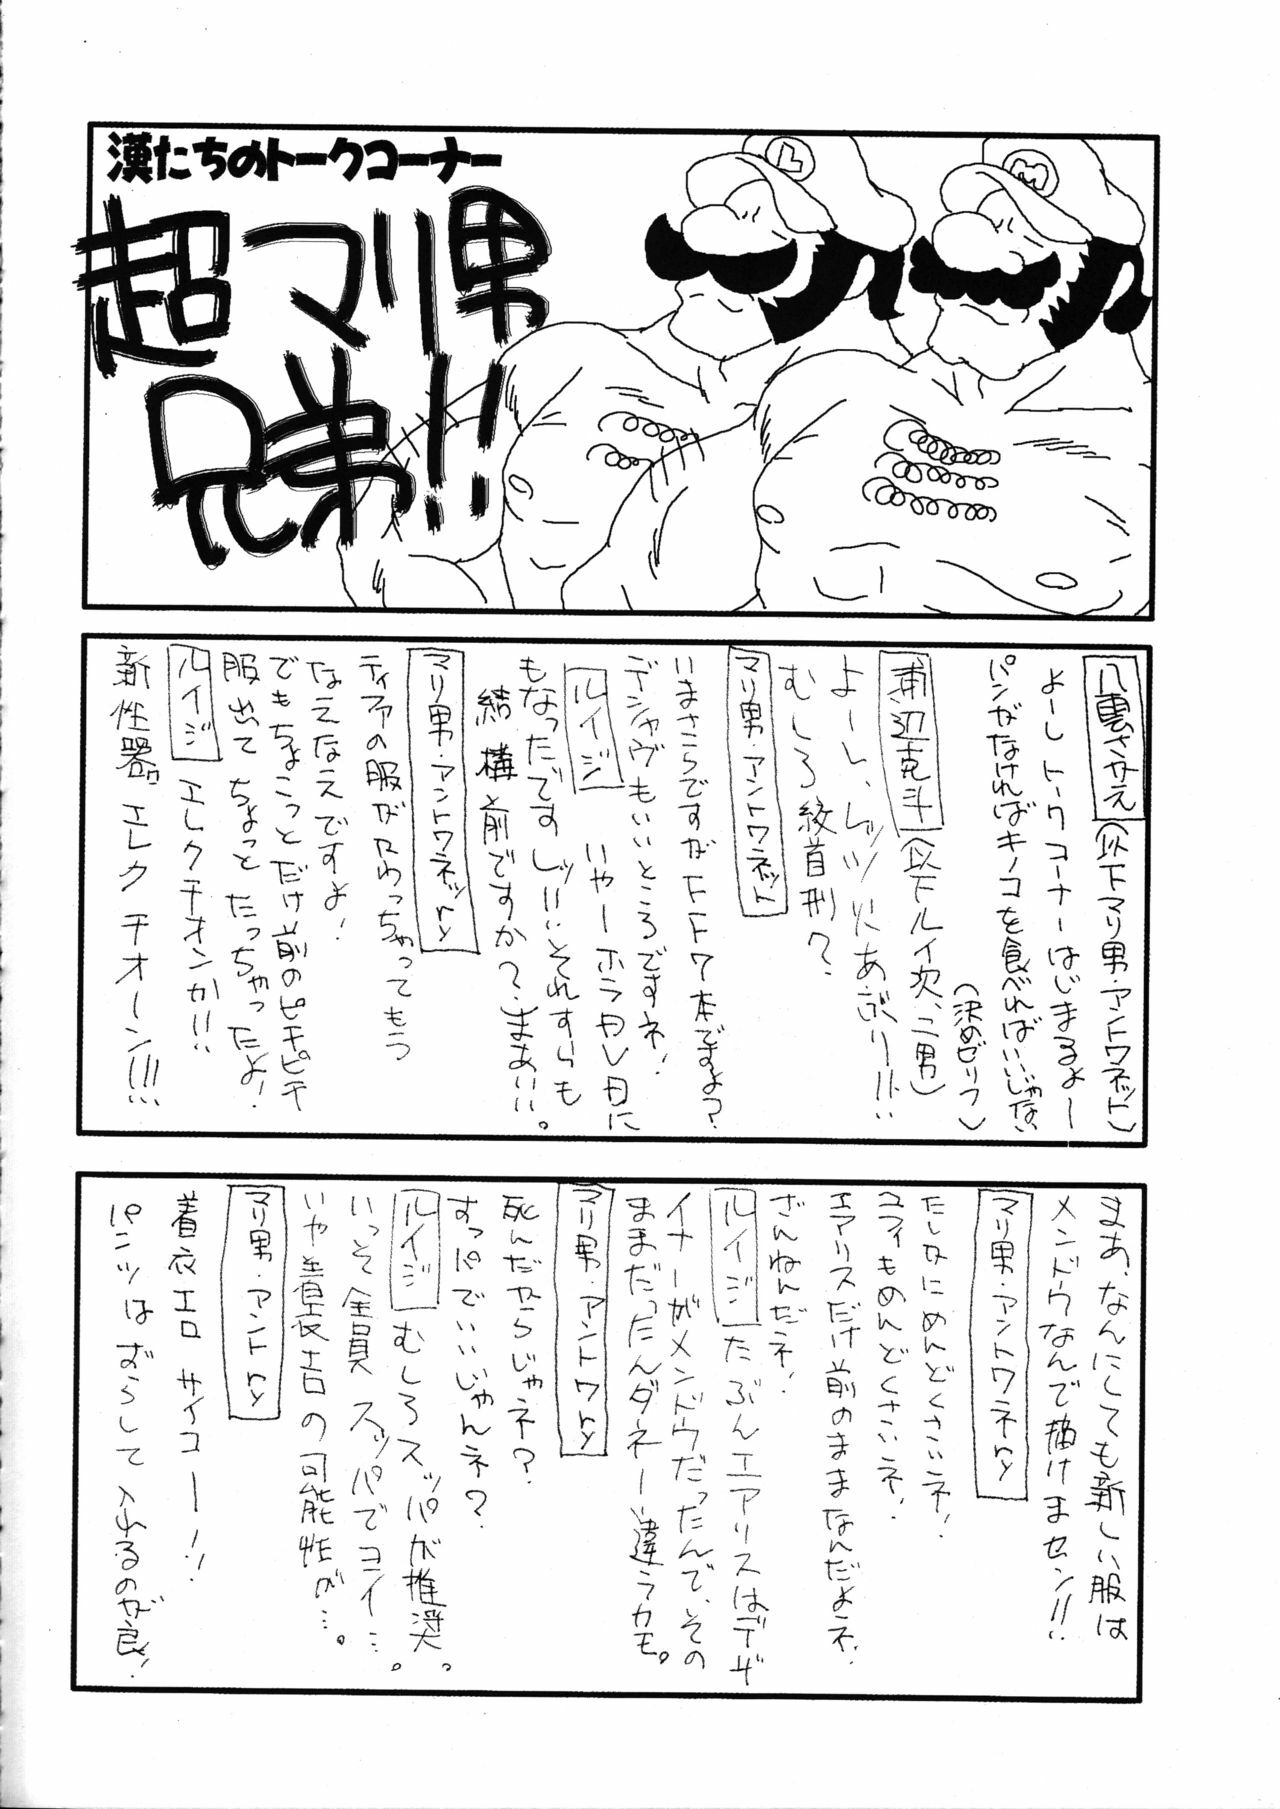 漢たちのトークコーナー
超マリ男
兄弟!!
L
M
八重さかえ(以下マリ男・アントワネット)
よーしトークコーナーはじまるよ〜
パンがなければキノコを食べればいいじゃない
(決めゼリフ)
浦辺克斗(以下ルイ次、二男)
よーし、レッツ火あぶり!!
むしろ絞首刑?
マリ男・アントワネット
いまさらですがFF7本ですよ?
デジャヴもいいところですネ!
ルイジ いやーホラAVAに
もなったですしッ!!それすらも
結構前ですか?(まあ)!!。
マリ男・アントワネッry
ティファの服がかわっちゃってもう
なえなえですよ!
でもちょこっとだけ前のピチピチ
服出てちょっとたっちゃったよ!
ルイジ エレクチオンか!!
新性器エレクチオーン!!!
まあ、なんにしても新しい服は
メンドウなんで描けませセン!!
マリ男・アントワネry
たしかにめんどくさいネ!
ユフィもめんどくさいネ!
エアリスだけ前のままなんだよネ!
ざんねんだネ!
ルイジ たぶんエアリスはデザ
イナーがメンドウだったんで、その
ままだったんダネー違うカモ。
マリ男・アントワry
死んだからじゃネ?
すっパでいいじゃんネ?
ルイジ むしろスッパが推奨。
いっそ全員スッパでコイ…。
いや着衣エロの可能性が…。
マリ男・アントry
着衣エロサイコー!!
パンツはずらして入れるのが良!